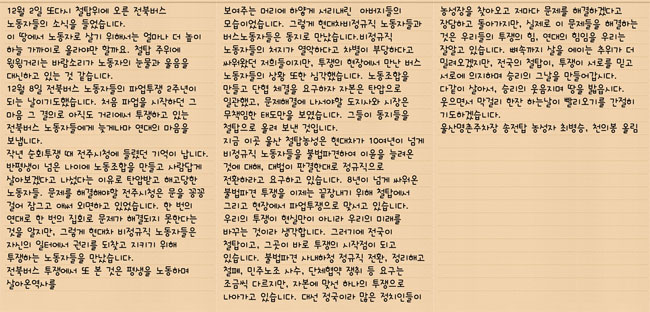 12월 2일 또다시 철탑위에 오른 전북버스
노동자들의 소식을 들었습니다.
이 땅에서 노동자로 살기 위해서는 얼마나 더 높이
하늘 가까이로 올라야만 할까요. 철탑 주위에
윙윙거리는 바람소리가 노동자의 눈물과 울음을
대신하고 있는 것 같습니다.
12월 8일 전북버스 노동자들의 파업투쟁 2주년이
되는 날이기도했습니다. 처음 파업을 시작하던 그
마음 그 결의로 아직도 거리에서 투쟁하고 있는
전북버스 노동자들에게 늦게나마 연대의 마음을
보냅니다.
작년 순회투쟁 때 전주시청에 들렸던 기억이 납니다.
반평생이 넘은 나이에 노동조합을 만들고 사람답게
살아보겠다고 나섰다는 이유로 탄압받고 해고당한
노동자들. 문제를 해결해야할 전주시청은 문을 꽁꽁
걸어 잠그고 애써 외면하고 있었습니다. 한 번의
연대로 한 번의 집회로 문제가 해결되지 못한다는
것을 알지만, 그렇게 현대차 비정규직 노동자들은
자신의 일터에서 권리를 되찾고 지키기 위해
투쟁하는 노동자들을 만났습니다.
전북버스 투쟁에서 또 본 것은 평생을 노동하며
살아온역사를
보여주는 머리에 하얗게 서리내린 아버지들의
모습이었습니다. 그렇게 현대차비정규직 노동자들과
버스노동자들은 동지로 만났습니다.비정규직
노동자들의 처지가 열악하다고 차별이 부당하다고
싸워왔던 저희들이지만, 투쟁의 현장에서 만난 버스
노동자들의 상황 또한 심각했습니다. 노동조합을
만들고 단협 체결을 요구하자 자본은 탄압으로
일관했고, 문제해결에 나서야할 도지사와 시장은
무책임한 태도만을 보였습니다. 그들이 동지들을
철탑으로 올려 보낸 것입니다.
지금 이곳 울산 철탑농성은 현대차가 10여년이 넘게
비정규직 노동자들을 불법파견하여 이윤을 늘려온
것에 대해, 대법이 판결한대로 정규직으로
전환하라고 요구하고 있습니다. 8년이 넘게 싸워온
불법파견 투쟁을 이제는 끝장내기 위해 철탑에서
그리고 현장에서 파업투쟁으로 맞서고 있습니다.
우리의 투쟁이 현실만이 아니라 우리의 미래를
바꾸는 것이라 생각합니다. 그러기에 전국이
철탑이고, 그곳이 바로 투쟁의 시작점이 되고
있습니다. 불법파견 사내하청 정규직 전환, 정리해고
철폐, 민주노조 사수, 단체협약 쟁취 등 요구는
조금씩 다르지만, 자본에 맞선 하나의 투쟁으로
나아가고 있습니다. 대선 정국이라 많은 정치인들이
농성장을 찾아오고 저마다 문제를 해결하겠다고
장담하고 돌아가지만, 실제로 이 문제들을 해결하는
것은 우리들의 투쟁의 힘, 연대의 힘임을 우리는
잘알고 있습니다. 뼈속까지 살을 에이는 추위가 더
밀려오겠지만, 전국의 철탑이, 투쟁이 서로를 믿고
서로에 의지하며 승리의 그날을 만들어갑시다.
다같이 살아서, 승리의 웃음지며 땅을 밟읍시다.
웃으면서 막걸리 한잔 하는날이 빨리오기를 간절히
기도하겠습니다.
울산명촌주차장 송전탑 농성자 최병승, 천의봉 올림